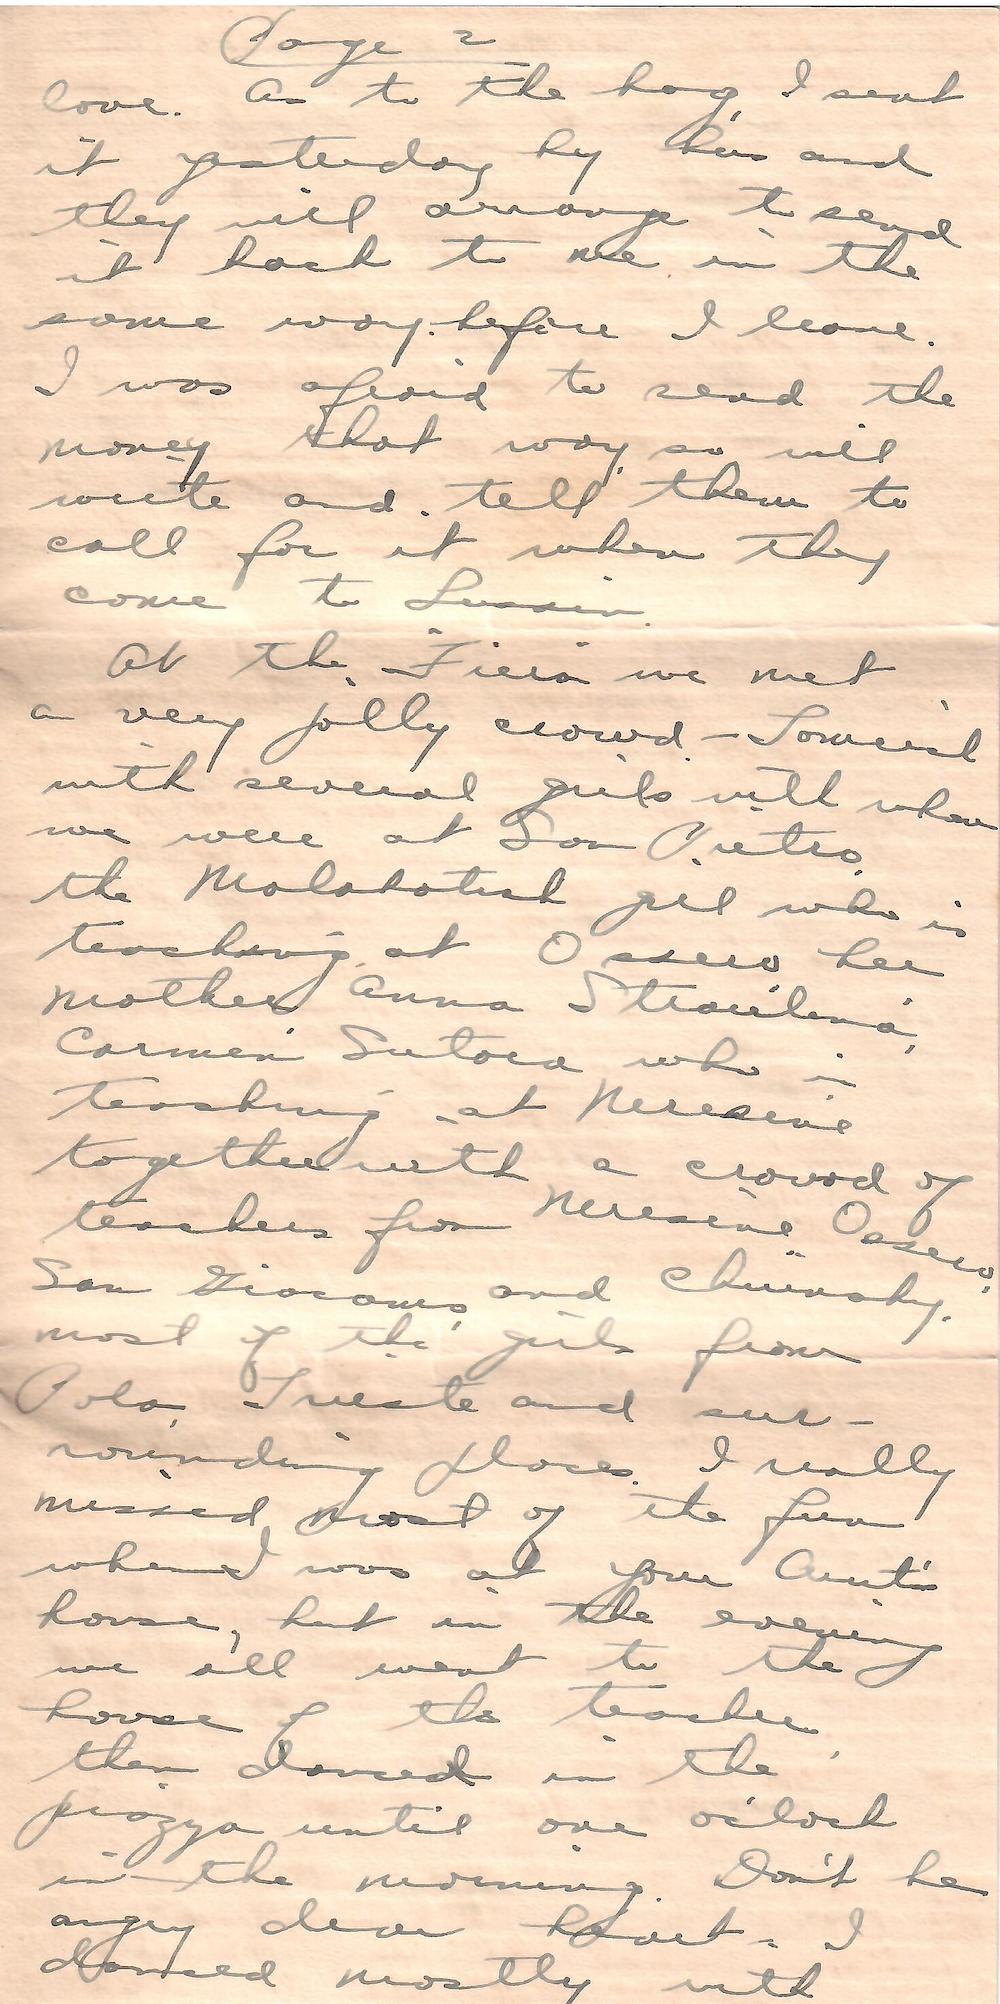 Page 2
love. As to the bag, I sent
it yesterday by bus and
they will arrange to send
it back to me in the
same way before I leave.
I was afraid to send the
money that way, so will
write and tell them to
call for it when they
come to Lussin.
At the Fiera we met
a very jolly crowd -
with several girls with whom
we were at San Pietro,
the girl who is
teaching at Ossero, her
mother, Anna
Carmen who is
teaching at Neresine
together with a crowd of
teachers from Neresine, Ossero,
San Giacomo, and Chiunschy.
most of the girls from
Pola, Trieste and sur-
rounding places. I really
missed most of the fun
when I was at your Aunt's
house, but in the evening
we all went to the
house of the teacher,
then danced in the
piazza until one o'clock
in the morning. Don't be
angry dear heart - I
danced mostly with